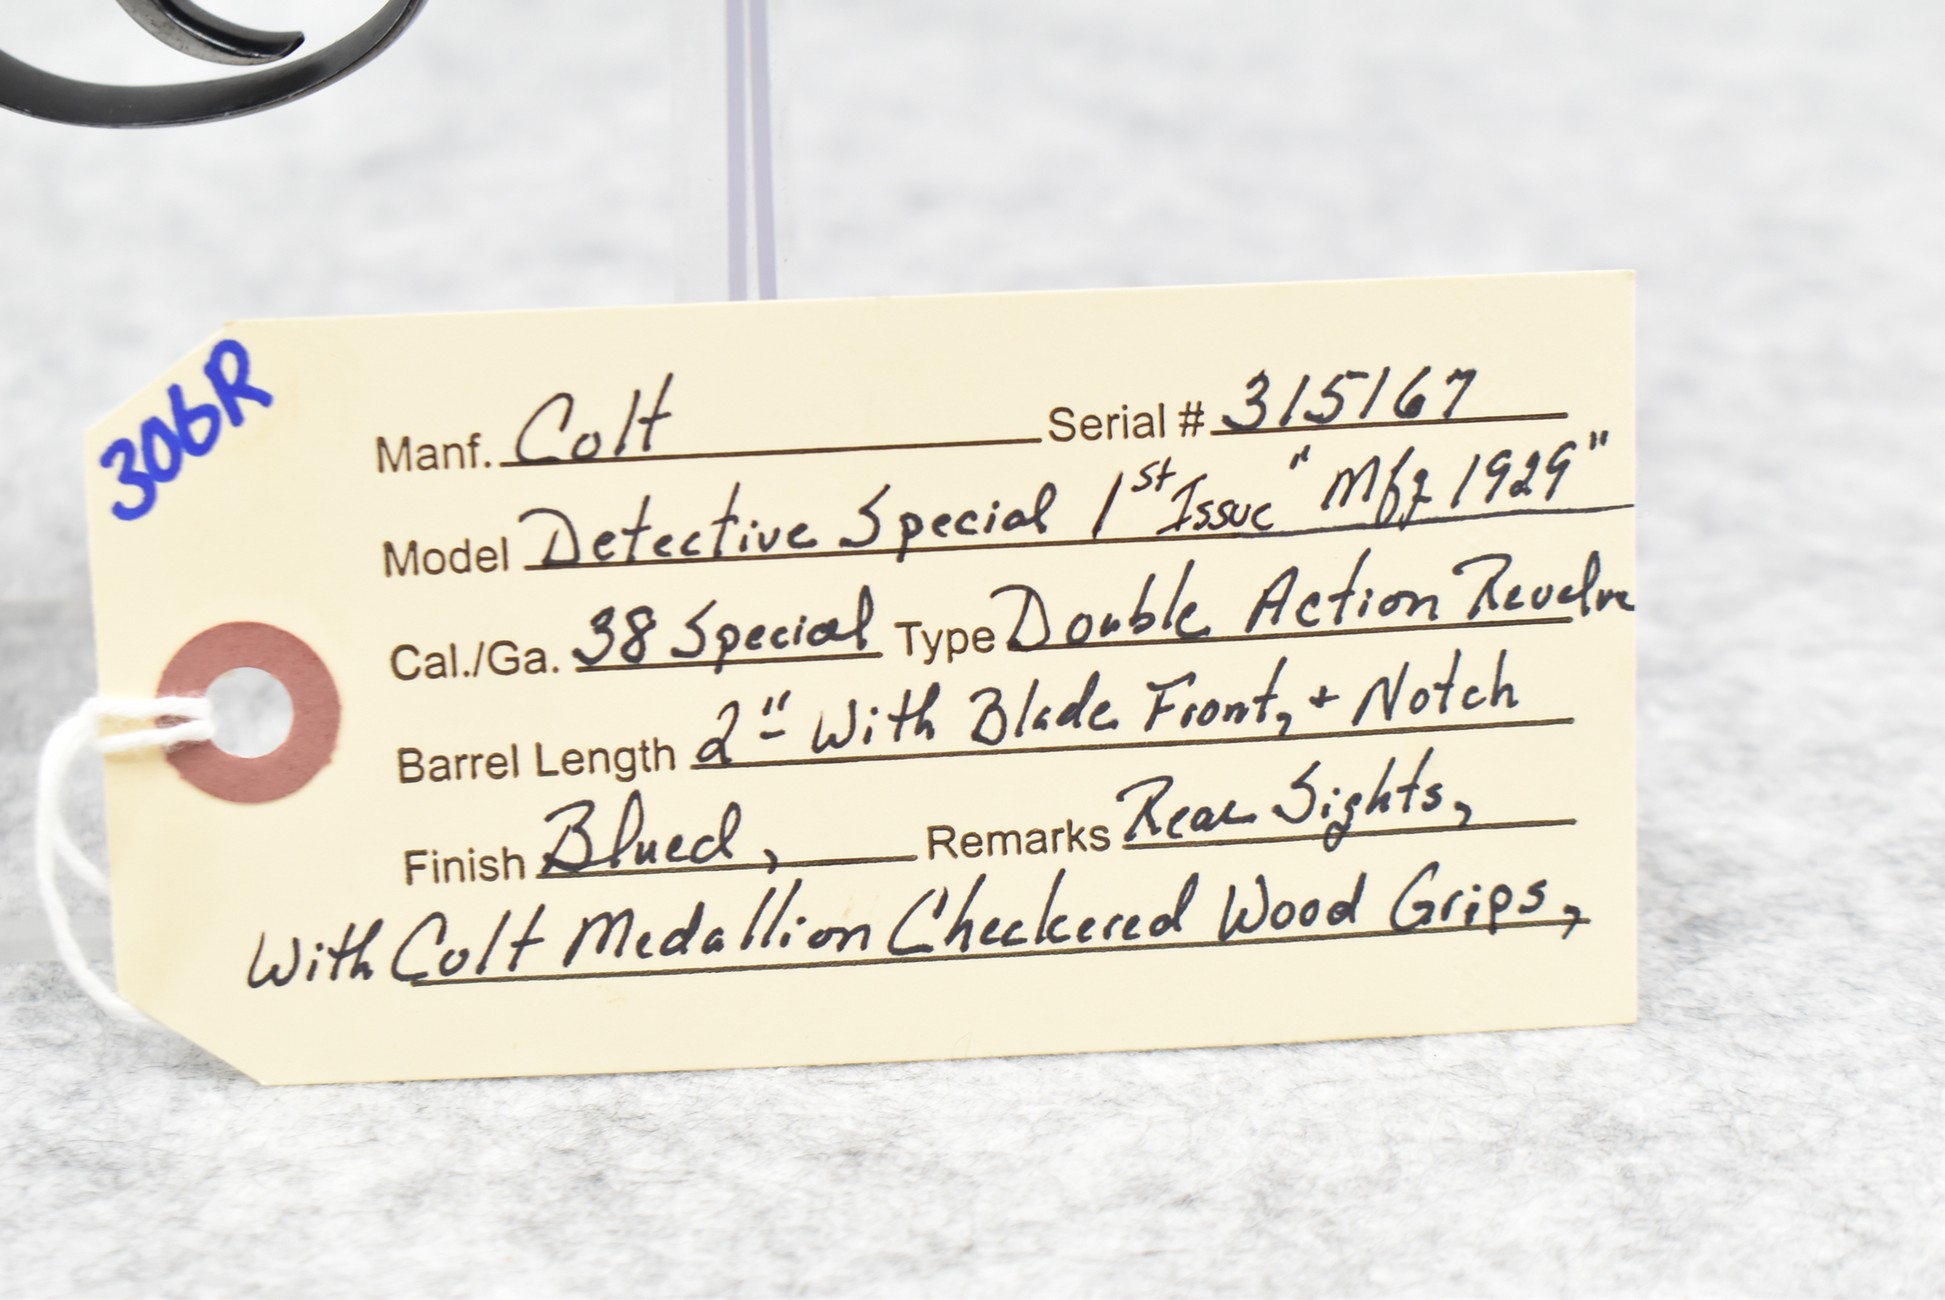 306R
Manf. Colt Serial # 315167
Model Detective Special 1st Issue "Mfg 1929"
Cal./Ga. 38 Special Type Double Action Revolve
Barrel Length 2" With Blade Front, + Notch
Finish Blued, Remarks Rear Sights,
With Colt Medallion Checkered Wood Grips,